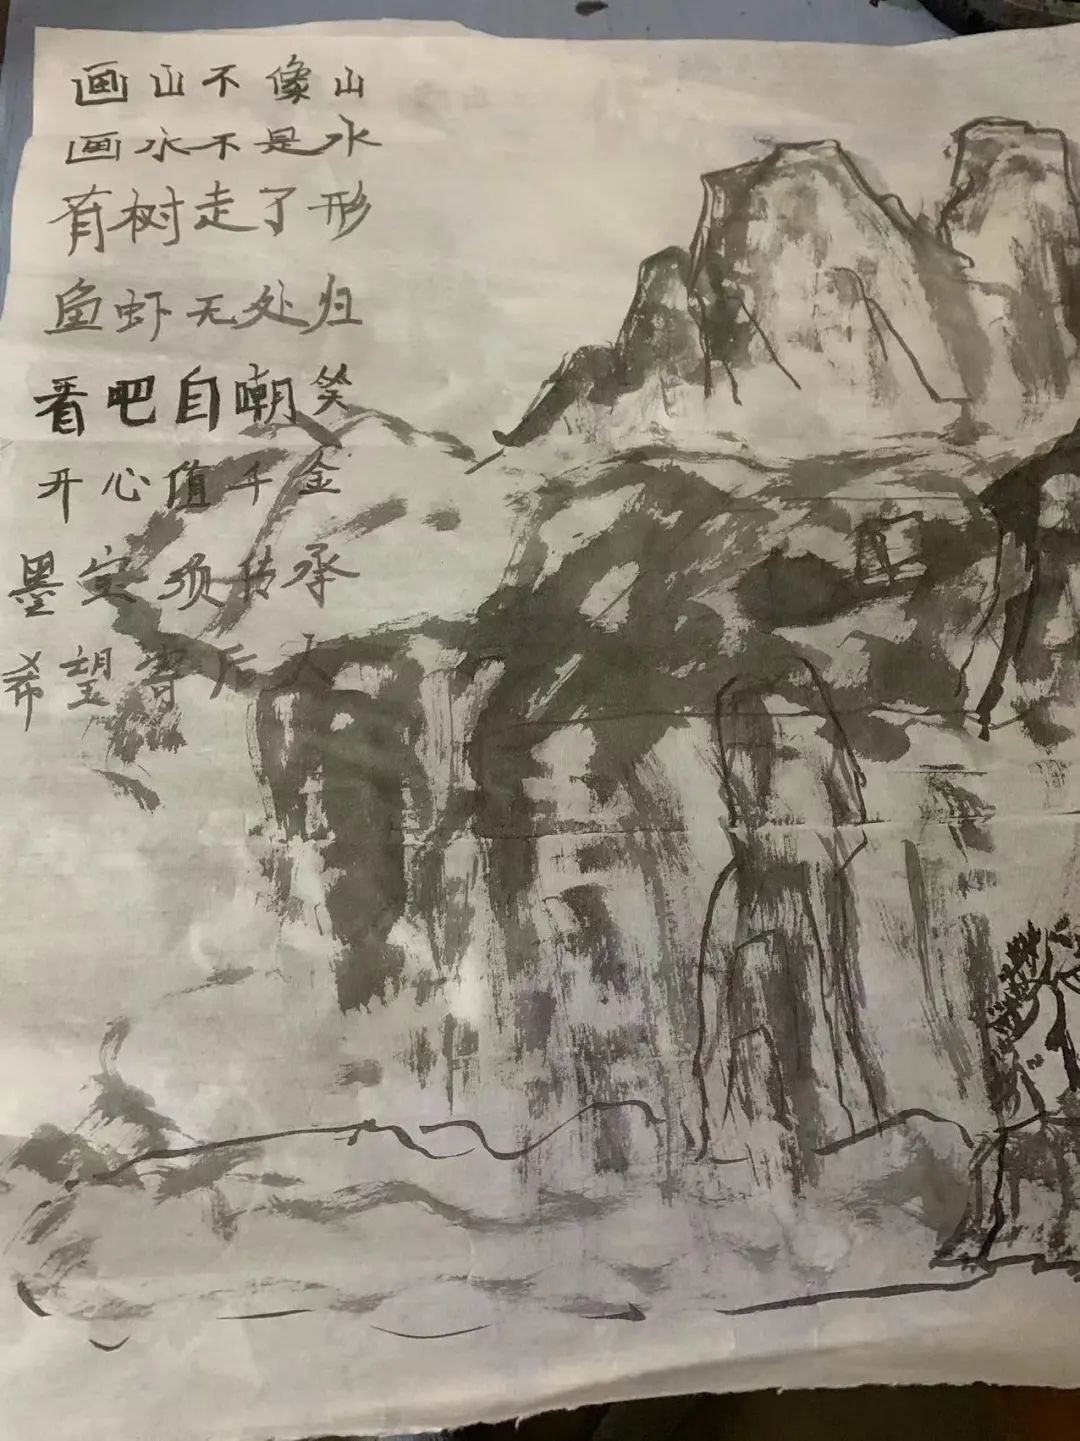 画山不像山
画水不是水
有树走了形
鱼虾无处归
看吧自嘲笑
开心值千金
墨宝须传承
希望寄后人